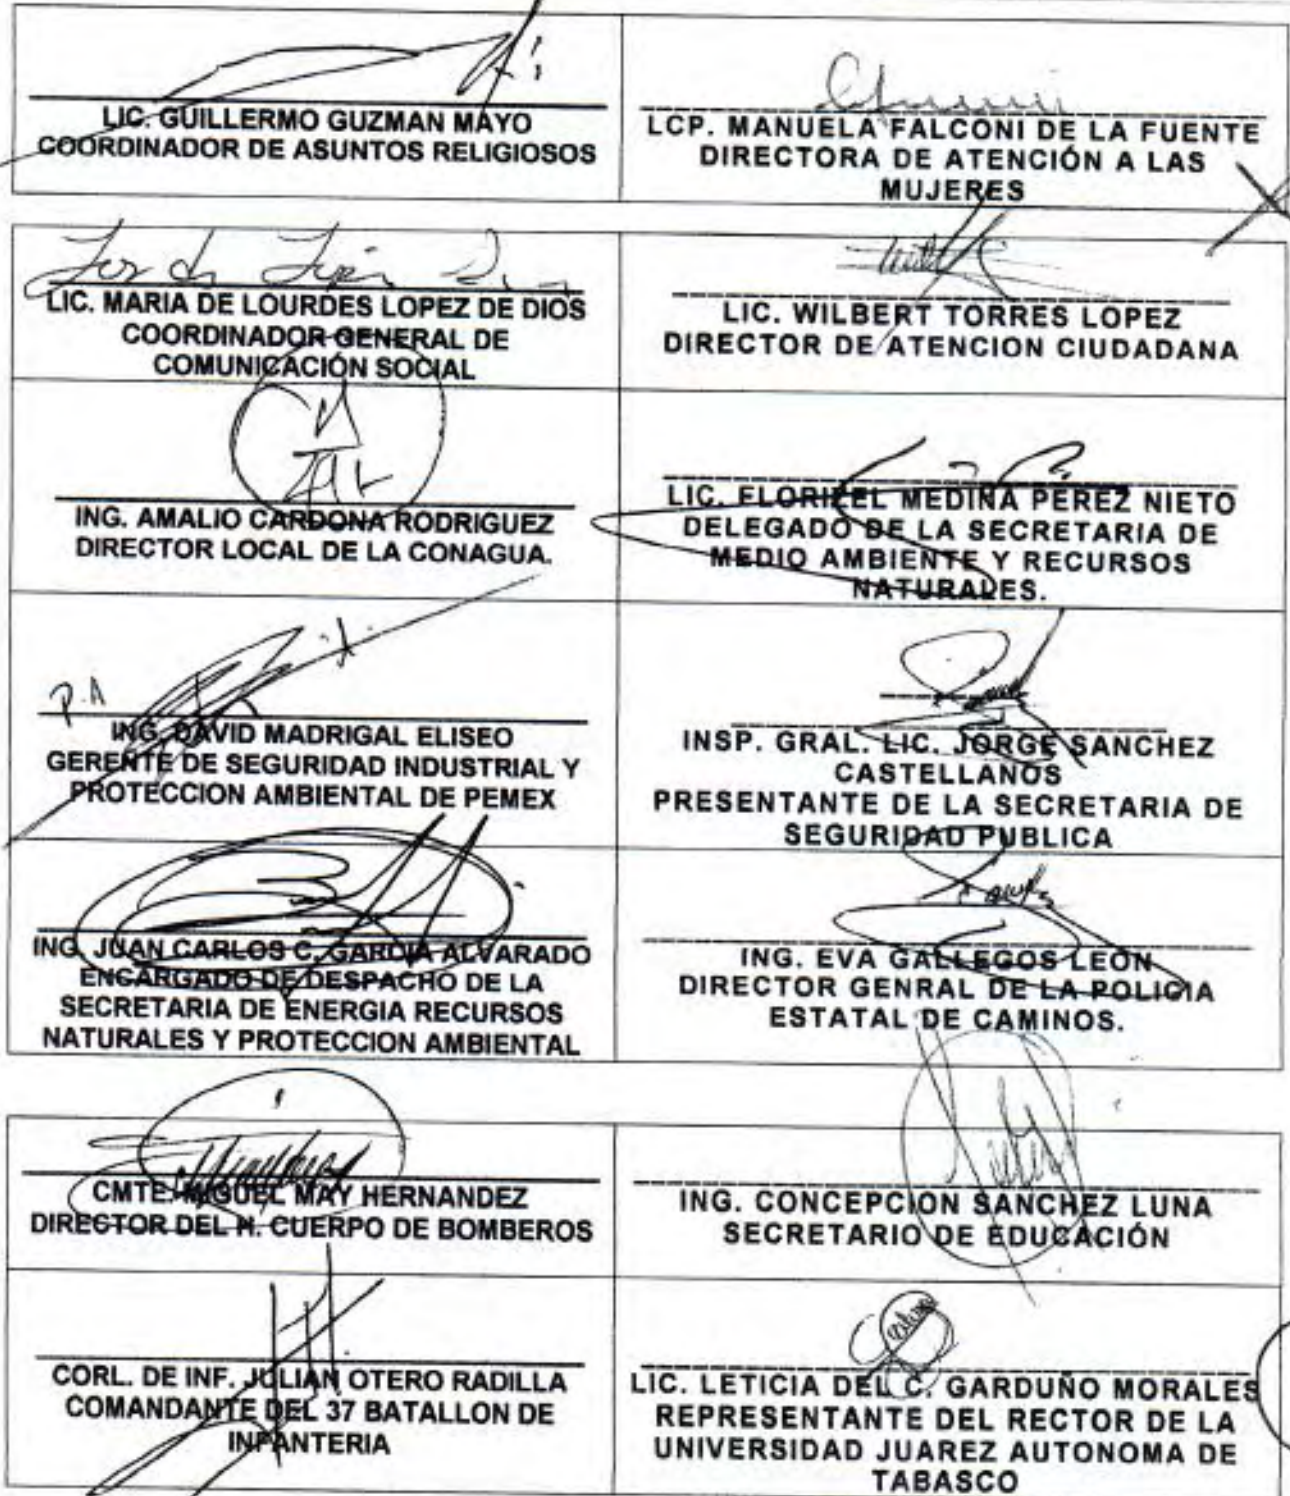 LIC. GUILLERMO GUZMAN MAYO
COORDINADOR DE ASUNTOS RELIGIOSOS
LCP. MANUELA FALCONI DE LA FUENTE
DIRECTORA DE ATENCIÓN A LAS
MUJERES
LIC. MARIA DE LOURDES LOPEZ DE DIOS
COORDINADOR GENERAL DE
COMUNICACIÓN SOCIAL
LIC. WILBERT TORRES LOPEZ
DIRECTOR DE ATENCION CIUDADANA
ING. AMALIO CARDONA RODRIGUEZ
DIRECTOR LOCAL DE LA CONAGUA.
LIC. FLORIZEL MEDINA PEREZ NIETO
DELEGADO DE LA SECRETARIA DE
MEDIO AMBIENTE Y RECURSOS
NATURALES.
P.A
ING. DAVID MADRIGAL ELISEO
GERENTE DE SEGURIDAD INDUSTRIAL Y
PROTECCION AMBIENTAL DE PEMEX
INSP. GRAL. LIC. JORGE SANCHEZ
CASTELLANOS
PRESENTANTE DE LA SECRETARIA DE
SEGURIDAD PUBLICA
ING. JUAN CARLOS C. GARCIA ALVARADO
ENCARGADO DE DESPACHO DE LA
SECRETARIA DE ENERGIA RECURSOS
NATURALES Y PROTECCION AMBIENTAL
ING. EVA GALLEGOS LEON
DIRECTOR GENRAL DE LA POLICIA
ESTATAL DE CAMINOS.
CMTE. MIGUEL MAY HERNANDEZ
DIRECTOR DEL H. CUERPO DE BOMBEROS
ING. CONCEPCION SANCHEZ LUNA
SECRETARIO DE EDUCACIÓN
CORL. DE INF. JULIAN OTERO RADILLA
COMANDANTE DEL 37 BATALLON DE
INFANTERIA
LIC. LETICIA DEL C. GARDUÑO MORALES
REPRESENTANTE DEL RECTOR DE LA
UNIVERSIDAD JUAREZ AUTONOMA DE
TABASCO